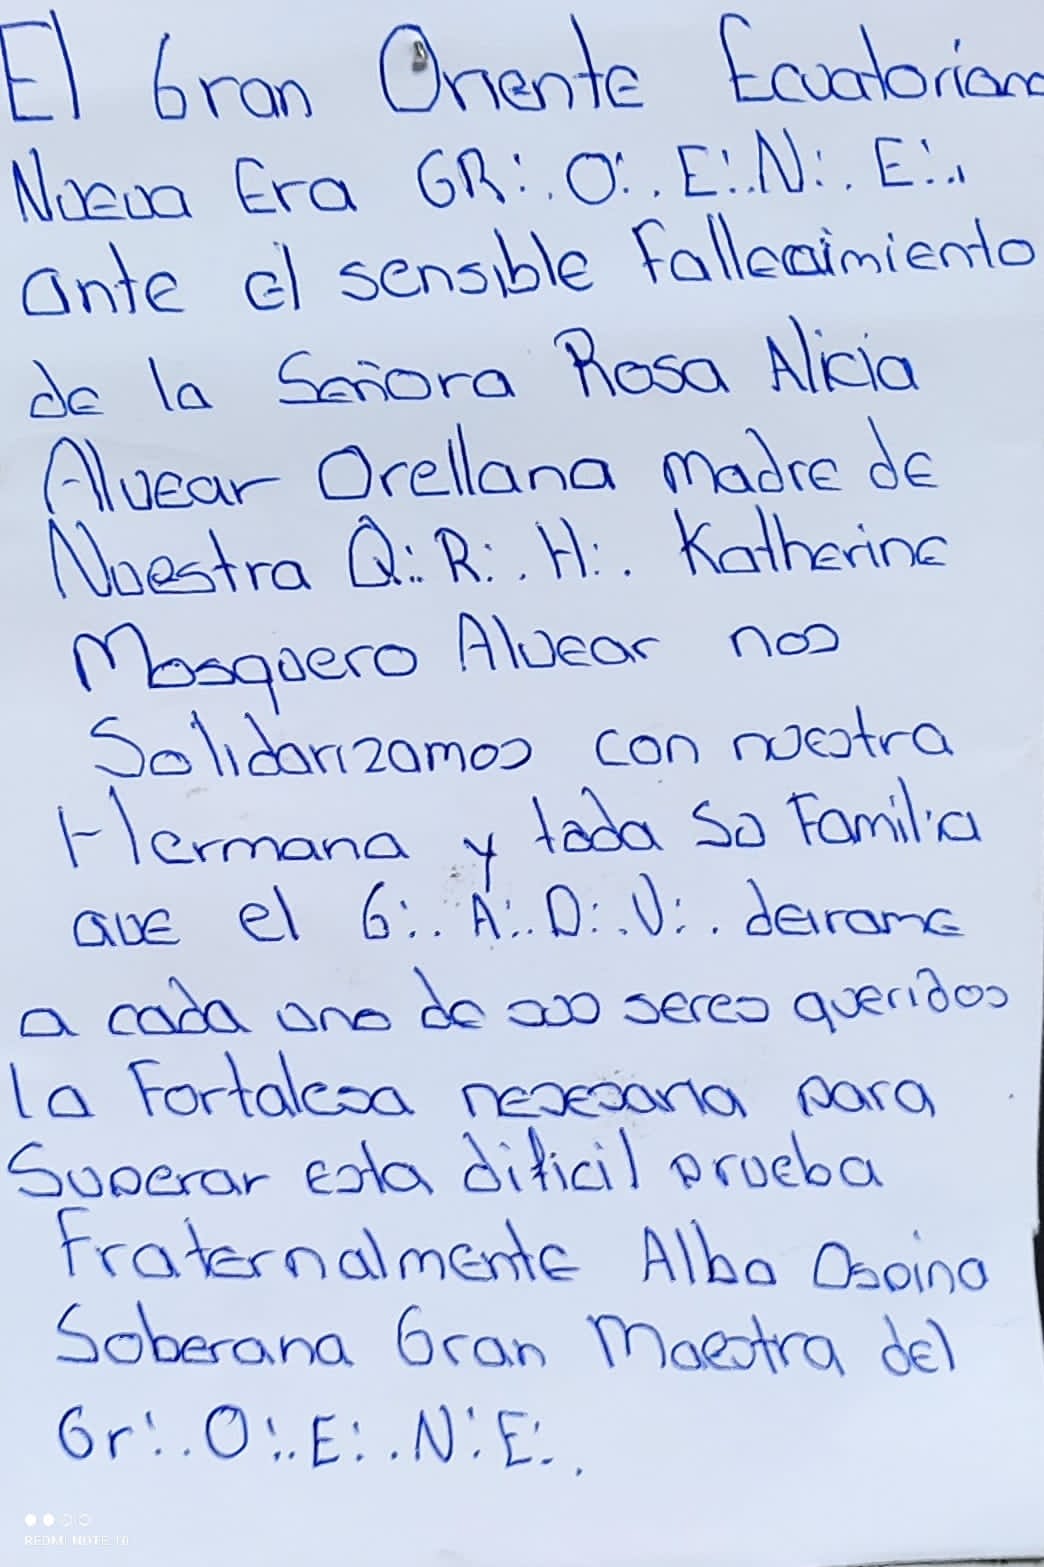 El Gran Oriente Ecuatoriano
Nueva Era GR∴ O∴ E∴ N∴ E∴
ante el sensible fallecimiento
de la Señora Rosa Alicia
Alvear Orellana madre de
Nuestra Q∴ R∴ H∴ Katherine
Mosquero Alvear nos
Solidarizamos con nuestra
Hermana y toda su Familia
que el G∴ A∴ D∴ U∴ derrame
a cada uno de sus seres queridos
la Fortalesa nesesaria para
Superar esta dificil prueba
Fraternalmente Alba Ospina
Soberana Gran Maestra del
Gr∴ O∴ E∴ N∴ E∴
REDMI NOTE 10